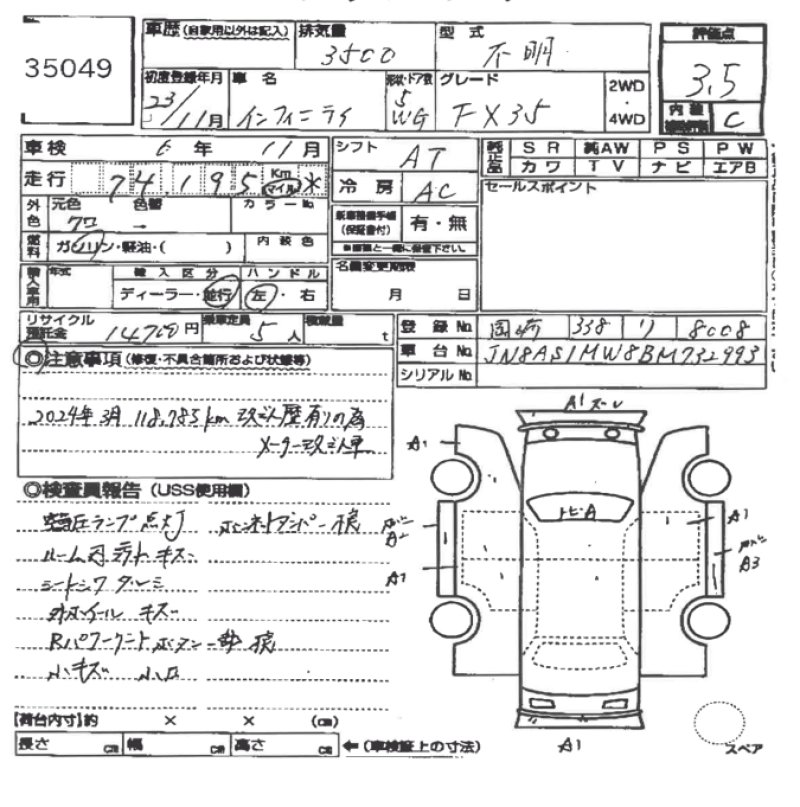 35049
車歴 (自家用以外は記入)
排気量
3500
型式
不明
評価点
3.5
内装
C
初度登録年月
23/11月
車名
インフィニティ
形状・ドア数
5
WG
グレード
FX35
2WD
・
4WD
車検 6年 11月
シフト AT
純正品 SR 純AW PS PW
カワ TV ナビ エアB
走行 74,195 Km マイル *
冷房 AC
セールスポイント
外色 元色 色替 カラーNo.
クロ
(保証書付)
有・無
燃料 ガソリン・軽油・( ) 内装色
名義変更期限
月 日
輸入車用 年式 輸入区分 ハンドル
ディーラー・並行 左・右
リサイクル預託金 14760円 乗車定員 5人 積載量 t
登録No. 岡崎 338 リ 8008
車台No. JN8AS1MW8BM732993
シリアルNo.
◎注意事項 (修復・不具合箇所および状態等)
2024年3月 118,785km 改ざん歴有りの為
メーター改ざん車
◎検査員報告 (USS使用欄)
空気圧ランプ点灯 ボンネットダンパー損
ルーム内 キズ
シート シワ
ホイール キズ
Rパワーシートボタン一部損
小キズ 小凹
A1
A1
トビA
A1
A2
A1
A3
A1
【荷台内寸】約 × × (cm)
長さ cm 幅 cm 高さ cm ←(車検証上の寸法)
スペア